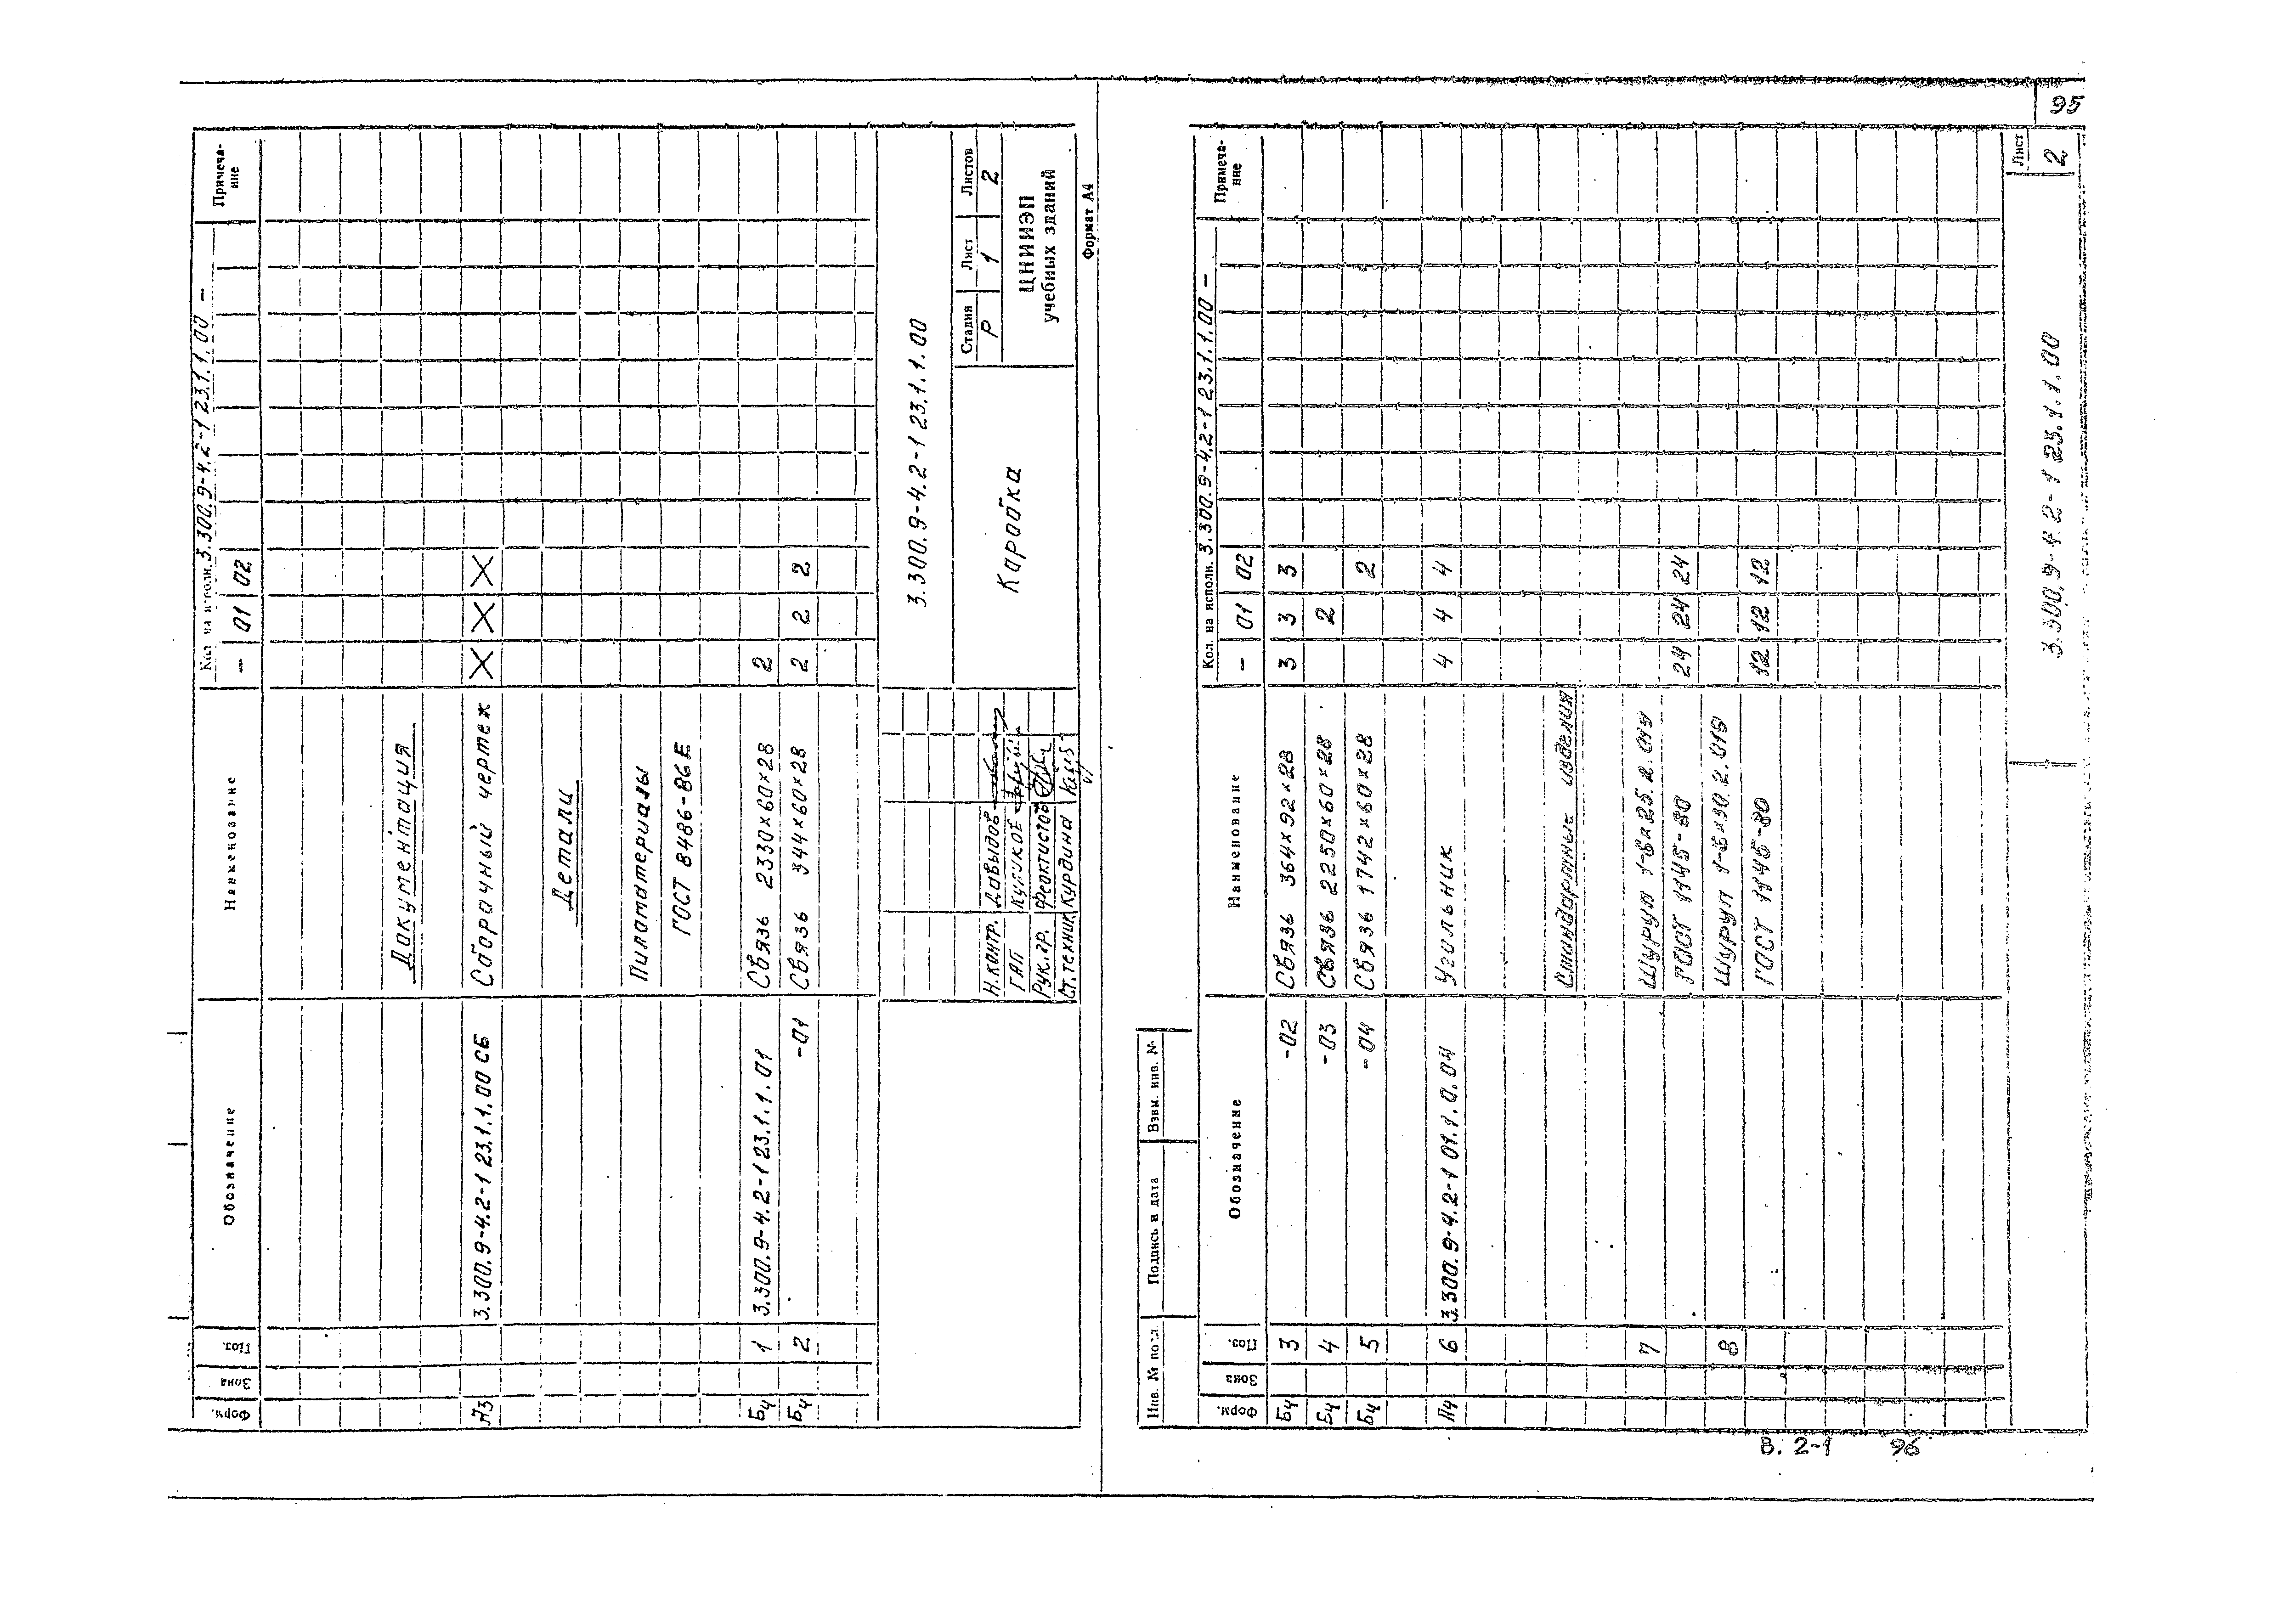 Форм.
Зона
Поз.
Обозначение
Наименование
Кол. на исполн. 3.300.9-4.2-1 23.1.1.00 —
Примеча-
ние
— 01 02
Документация
А3 3.300.9-4.2-1 23.1.1.00 СБ Сборочный чертеж X X X
Детали
Пиломатериалы
ГОСТ 8486-86Е
Бч 1 3.300.9-4.2-1 23.1.1.01 Связь 2330×60×28 2
Бч 2 -01 Связь 344×60×28 2 2 2
3.300.9-4.2-1 23.1.1.00
Н.контр. Давыдов
ГАП Куликов
Рук.гр. Феоктистов
Ст.техник Курдина
Коробка
Стадия Лист Листов
Р 1 2
ЦНИИЭП
учебных зданий
Формат А4
95
Инв. № подл
Подпись и дата
Взам. инв. №
Форм.
Зона
Поз.
Обозначение
Наименование
Кол. на исполн. 3.300.9-4.2-1 23.1.1.00 —
Примеча-
ние
— 01 02
Бч 3 -02 Связь 364×92×28 3 3 3
Бч 4 -03 Связь 2250×60×28 2
Бч 5 -04 Связь 1742×60×28 2
А4 6 3.300.9-4.2-1 01.1.0.04 Угольник 4 4 4
Стандартные изделия
7 Шуруп 1-6×25.2.019
ГОСТ 1145-80 24 24 24
8 Шуруп 1-6×30.2.019
ГОСТ 1145-80 12 12 12
3.300.9-4.2-1 23.1.1.00
Лист
2
В. 2-1 96